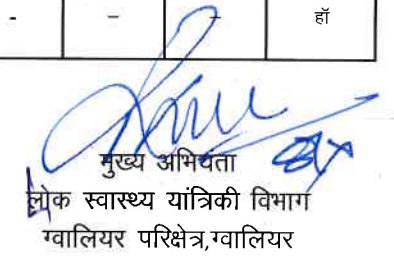 - – – हॉ
मुख्य अभियंता
लोक स्वास्थ्य यांत्रिकी विभाग
ग्वालियर परिक्षेत्र,ग्वालियर